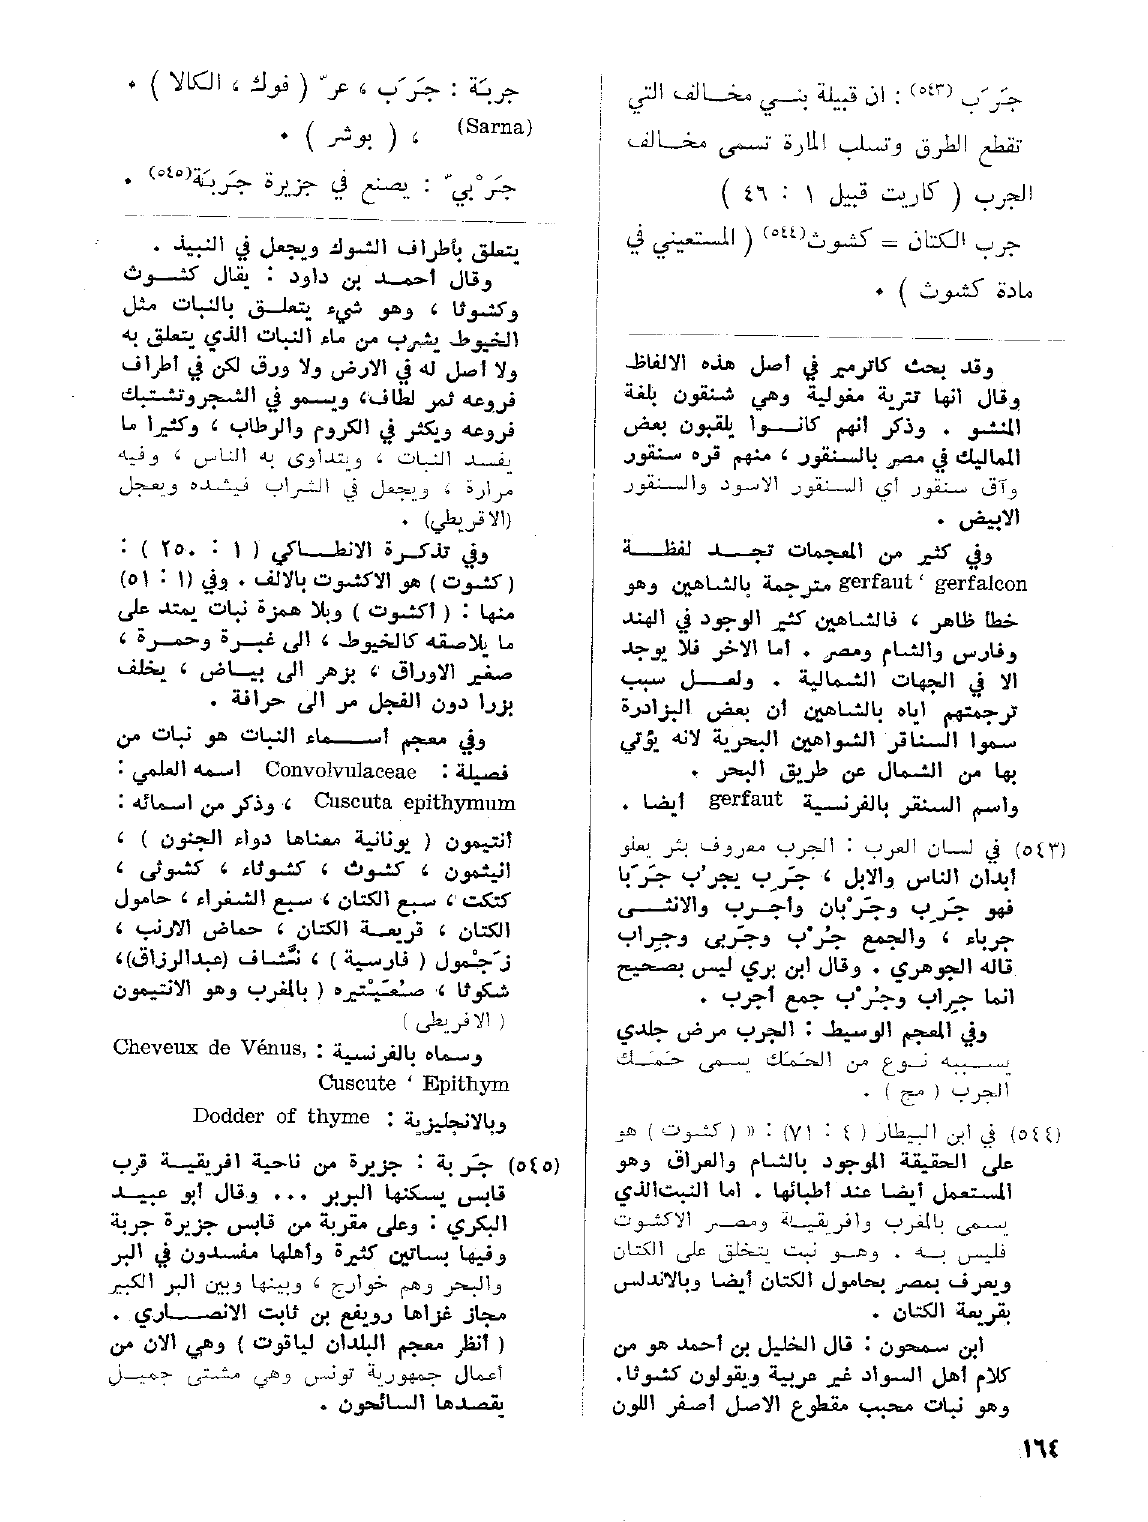 جَرَب (٥٤٣) : ان قبيلة بني مخالف التي
تقطع الطرق وتسلب المارة تسمى مخالف
الجرب ( كاريت قبيل ١ : ٤٦ )
جرب الكتان = كشوث(٥٤٤) ( المستعيني في
مادة كشوث ) .
وقد بحث كاترمير في أصل هذه الالفاظ
وقال انها تترية مغولية وهي شنقون بلغة
المنشو . وذكر انهم كانوا يلقبون بعض
المماليك في مصر بالسنقور ، منهم قره سنقور
وآق سنقور أي السنقور الاسود والسنقور
الابيض .
وفي كثير من المعجمات تجد لفظة
gerfaut ، gerfalcon مترجمة بالشاهين وهو
خطأ ظاهر ، فالشاهين كثير الوجود في الهند
وفارس والشام ومصر . أما الاخر فلا يوجد
الا في الجهات الشمالية . ولعل سبب
ترجمتهم اياه بالشاهين أن بعض البزادرة
سموا السناقر الشواهين البحرية لانه يؤتي
بها من الشمال عن طريق البحر .
واسم السنقر بالفرنسية gerfaut أيضا .
(٥٤٣) في لسان العرب : الجرب معروف بثر يعلو
أبدان الناس والابل ، جَرِب يجرَب جَرَبا
فهو جَرِب وجَرْبان وأجرب والانثى
جرباء ، والجمع جُرْب وجَربى وجِراب
قاله الجوهري . وقال ابن بري ليس بصحيح
انما جِراب وجُرْب جمع أجرب .
وفي المعجم الوسيط : الجرب مرض جلدي
يسببه نوع من الحَمَك يسمى حَمَك
الجرب ( مج ) .
(٥٤٤) في ابن البيطار ( ٤ : ٧١) : « ( كشوت ) هو
على الحقيقة الموجود بالشام والعراق وهو
المستعمل أيضا عند أطبائها . اما النبت الذي
يسمى بالمغرب وافريقية ومصر الاكشوت
فليس به . وهو نبت يتخلق على الكتان
ويعرف بمصر بحامول الكتان أيضا وبالاندلس
بقريعة الكتان .
ابن سمحون : قال الخليل بن أحمد هو من
كلام أهل السواد غير عربية ويقولون كشوثا.
وهو نبات محبب مقطوع الاصل أصفر اللون
جربَة : جَرَب ، عرّ ( فوك ، الكالا ) .
(Sarna) ، ( بوشر ) .
جَرْبيّ : يصنع في جزيرة جَرَبَة(٥٤٥) .
يتعلق بأطراف الشوك ويجعل في النبيذ .
وقال أحمد بن داود : يقال كشوث
وكشوثا ، وهو شيء يتعلق بالنبات مثل
الخيوط يشرب من ماء النبات الذي يتعلق به
ولا أصل له في الارض ولا ورق لكن في أطراف
فروعه ثمر لطاف، ويسمو في الشجر وتشتبك
فروعه ويكثر في الكروم والرطاب ، وكثيرا ما
يفسد النبات ، ويتداوى به الناس ، وفيه
مرارة ، ويجعل في الشراب فيشده ويعجل
(الاقريطي) .
وفي تذكرة الانطاكي ( ١ : ٢٥٠ ) :
( كشوت ) هو الاكشوت بالالف . وفي (١ : ٥١)
منها : ( أكشوت ) وبلا همزة نبات يمتد على
ما يلاصقه كالخيوط ، الى غبرة وحمرة ،
صغير الاوراق ، يزهر الى بياض ، يخلف
بزرا دون الفجل مر الى حرافة .
وفي معجم أسماء النبات هو نبات من
فصيلة : Convolvulaceae اسمه العلمي :
Cuscuta epithymum ، وذكر من اسمائه :
أنتيمون ( يونانية معناها دواء الجنون ) ،
انيثمون ، كشوث ، كشوثاء ، كشوثى ،
كتكت ، سبع الكتان ، سبع الشعراء ، حامول
الكتان ، قريعة الكتان ، حماض الارنب ،
زَجْمول ( فارسية ) ، نُشَّاف (عبدالرزاق)،
شكوثا ، صُعَيْتره ( بالمغرب وهو الانتيمون
( الاقريطى )
وسماه بالفرنسية : Cheveux de Vénus,
Cuscute ، Epithym
وبالانجليزية : Dodder of thyme
(٥٤٥) جَربة : جزيرة من ناحية افريقية قرب
قابس يسكنها البربر ... وقال أبو عبيد
البكري : وعلى مقربة من قابس جزيرة جربة
وفيها بساتين كثيرة وأهلها مفسدون في البر
والبحر وهم خوارج ، وبينها وبين البر الكبير
مجاز غزاها رويفع بن ثابت الانصاري .
( أنظر معجم البلدان لياقوت ) وهي الآن من
أعمال جمهورية تونس وهي مشتى جميل
يقصدها السائحون .
١٦٤